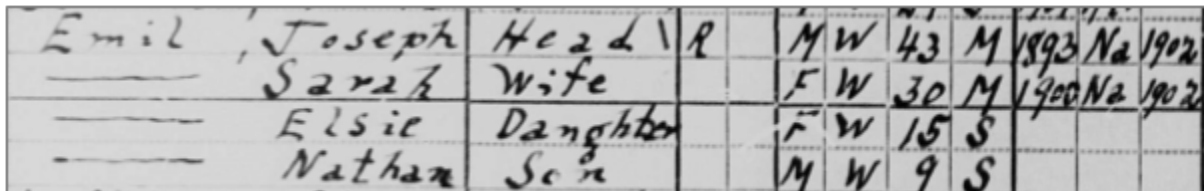 Emil, Joseph Head R M W 43 M 1893 Na 1902
Sarah Wife F W 30 M 1900 Na 1902
Elsie Daughter F W 15 S
Nathan Son M W 9 S